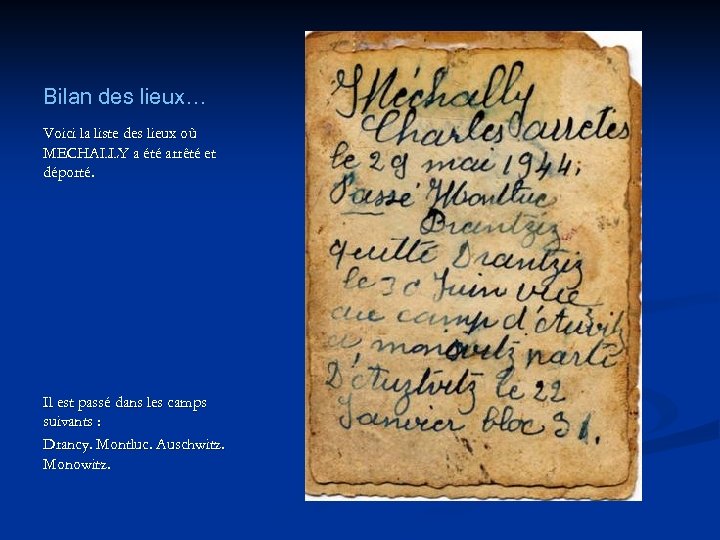 Bilan des lieux…
Voici la liste des lieux où
MECHALLY a été arrêté et
déporté.
Il est passé dans les camps
suivants :
Drancy. Montluc. Auschwitz.
Monowitz.
Méchally
Charles arretes
le 29 mai 1944,
Passé Montluc
Drantziz
quitté Drantziz
le 30 Juin
au camp d'Auvitz
a monovitz parti
D'Auztvitz le 22
Janvier bloc 31.